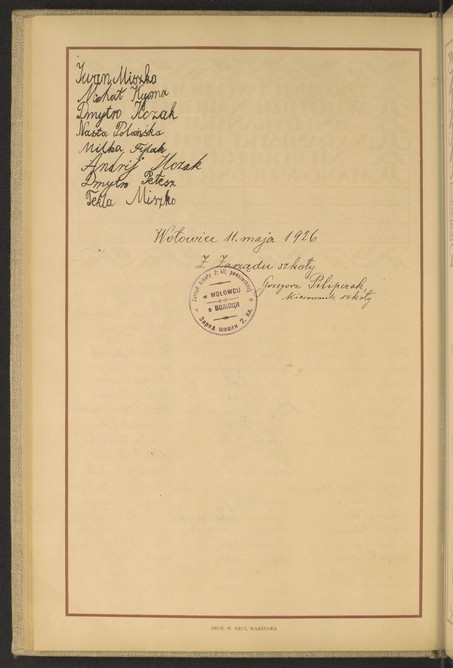 Iwan Miszko
Michał Kuzma
Dmytro Kozak
Nasta Polańska
Milka Fylak
Andrij Kozak
Dmytro Petesz
Tekla Miszko
Wołowiec 11. maja 1926
Z Zarządu szkoły
Grzegorz Pilipczak,
kierownik szkoły
Zarząd szkoły 2. kl. powszechnej
w WOŁOWCU
в ВОЛОВЦИ
Заряд школи 2. кл.
DRUK. M. ARCT, WARSZAWA